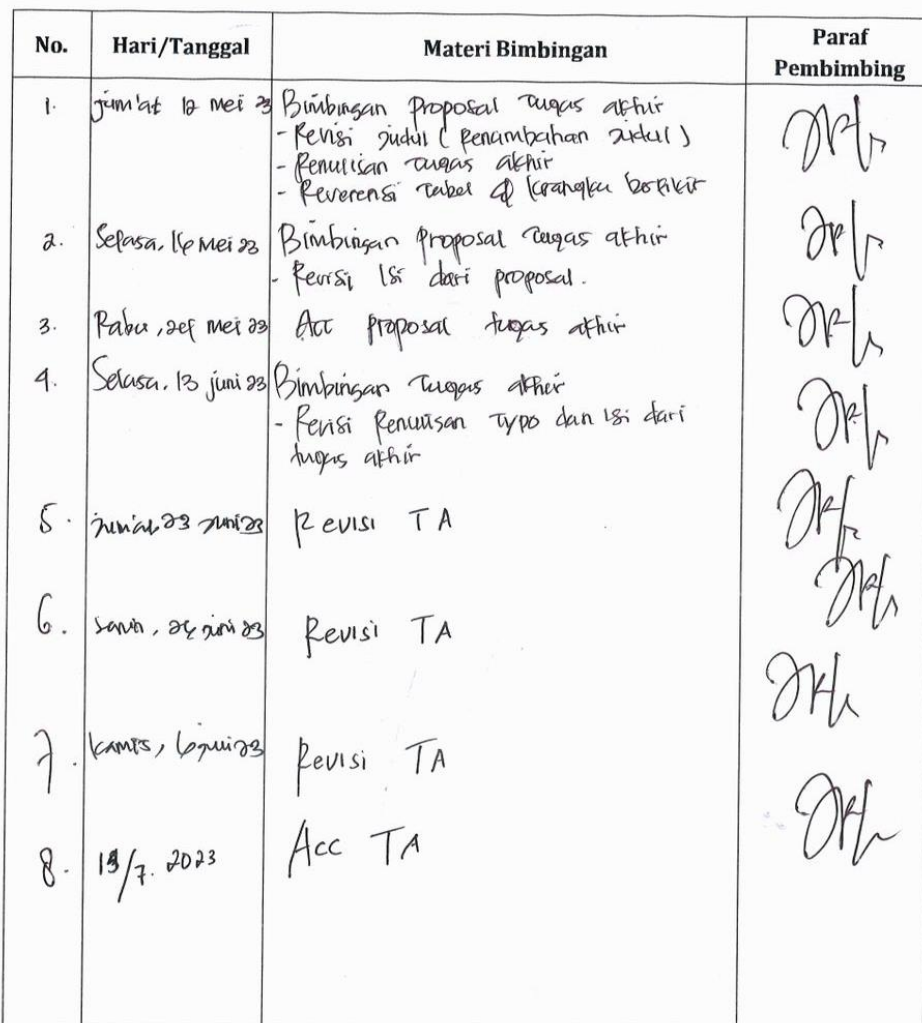 No. Hari/Tanggal Materi Bimbingan Paraf Pembimbing
1. Jum'at 12 Mei 23 Bimbingan Proposal Tugas akhir
- Revisi Judul (Penambahan Judul)
- Penulisan Tugas akhir
- Reverensi Tabel & Kerangka berfikir
2. Selasa, 16 Mei 23 Bimbingan Proposal Tugas akhir
- Revisi Isi dari proposal.
3. Rabu, 24 Mei 23 Acc proposal tugas akhir
4. Selasa, 13 juni 23 Bimbingan Tugas akhir
- Revisi Penulisan Typo dan isi dari
tugas akhir
5. 23 juni 23 Revisi TA
6. Senin, juni 23 Revisi TA
7. Kamis, 6 23 Revisi TA
8. /7. 2023 Acc TA